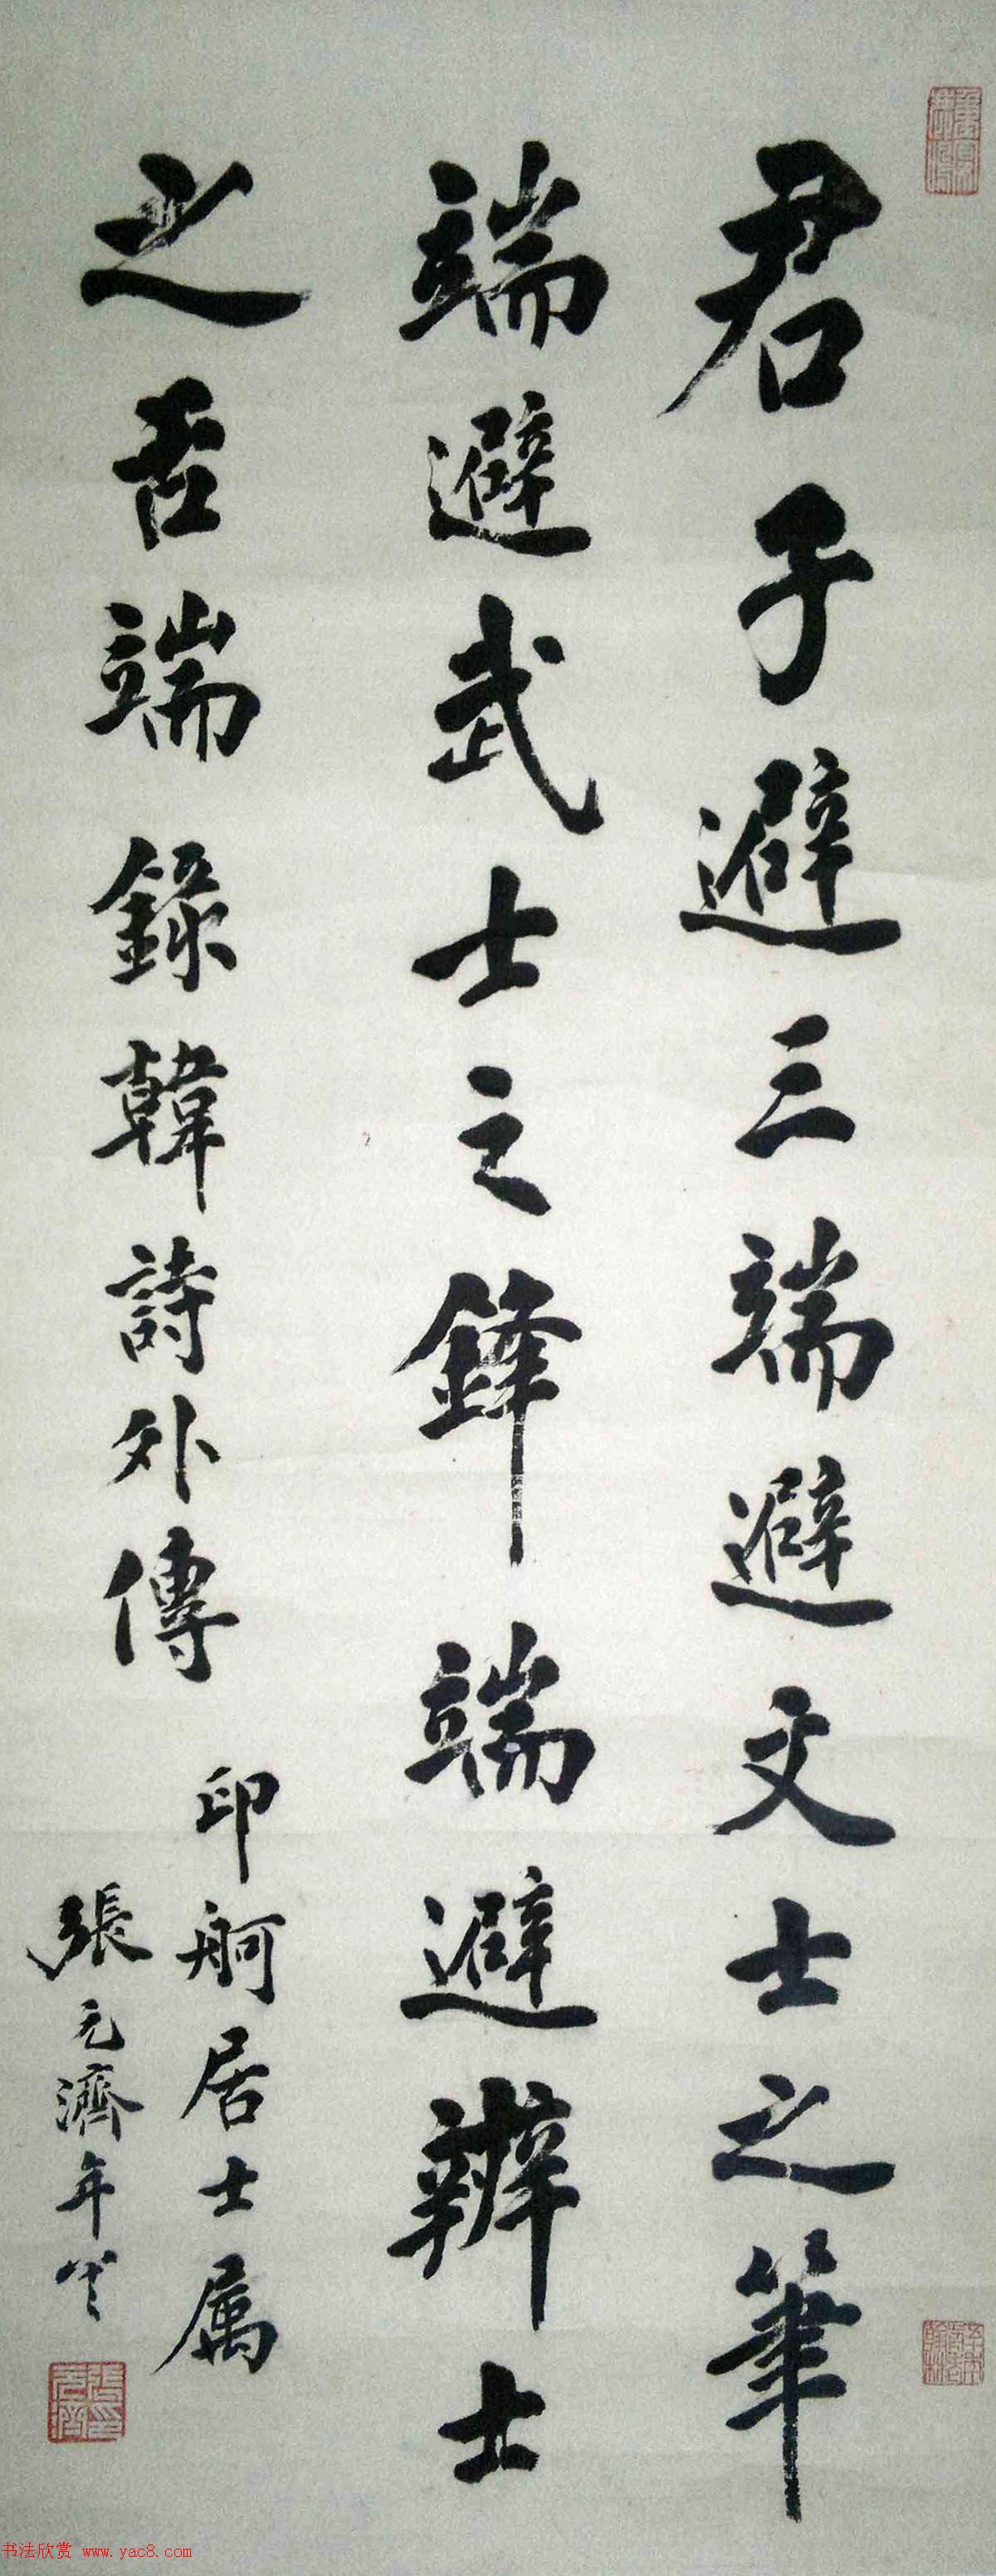 君子避三端避文士之筆
端避武士之鋒端避辯士
之舌端錄韓詩外傳
印舸居士属
張元濟年七十
張元濟印
书法欣赏 www.yac8.com